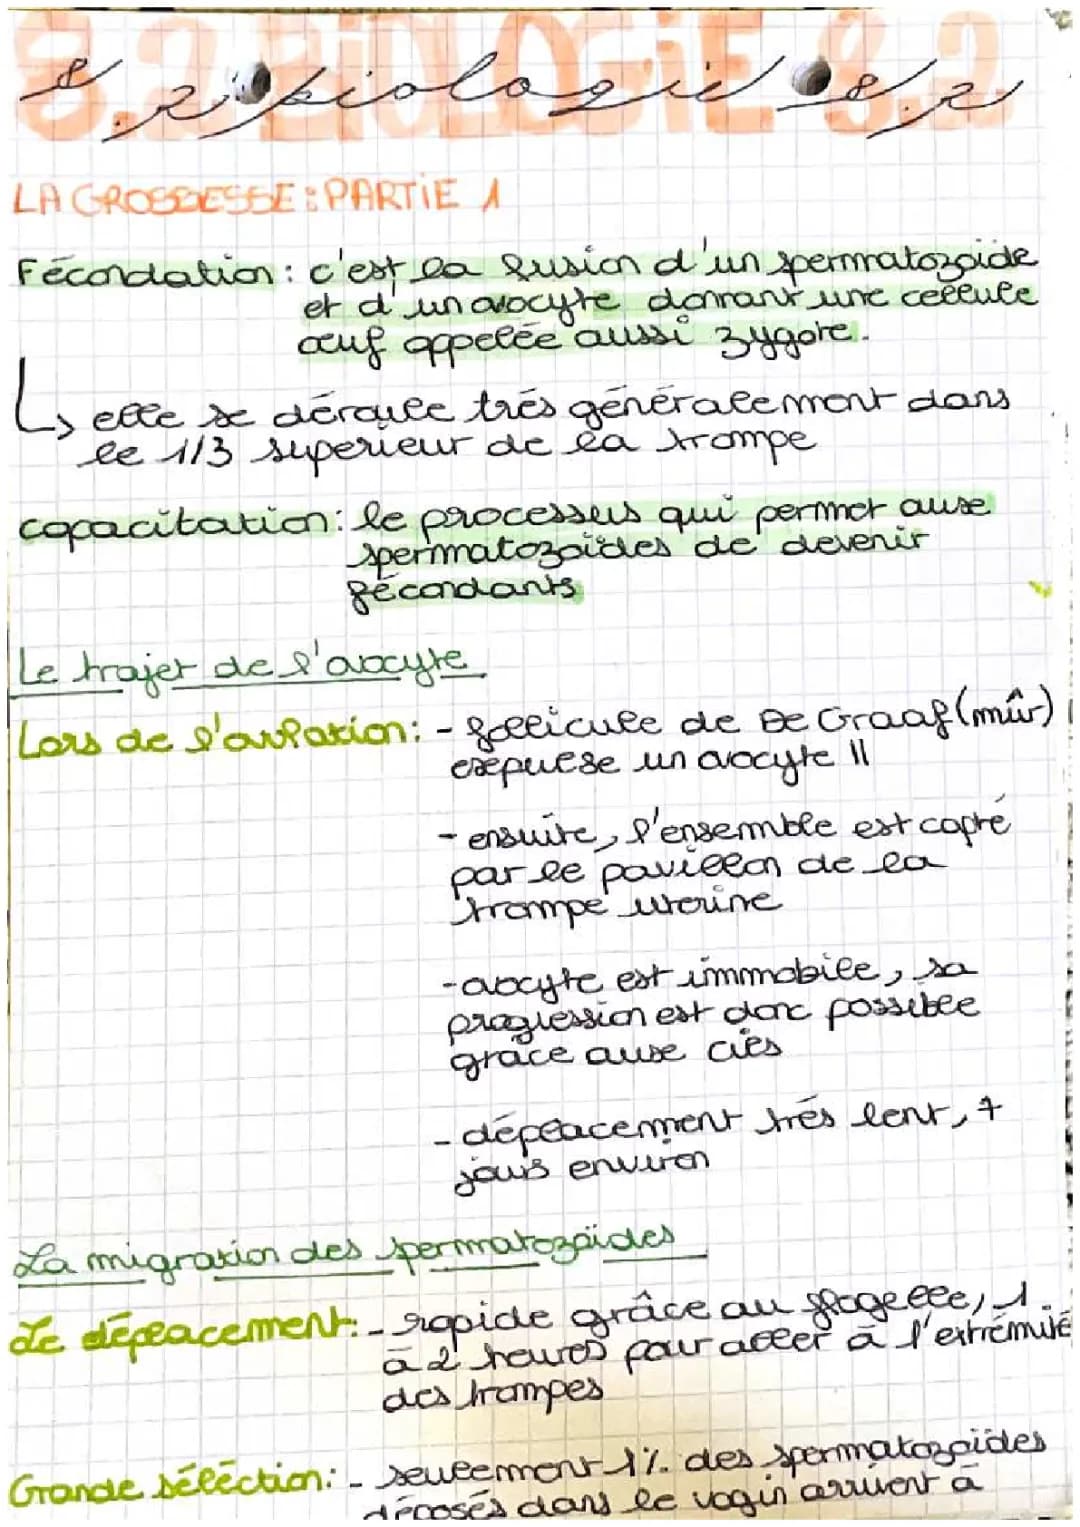 8.2 BIOLOGIE 8.2
8.2 biologie 8.2
LA GROSSESSE : PARTIE 1
Fécondation : c'est la fusion d'un spermatozoide
et d'un ovocyte donnant une cellule
œuf appelée aussi zygote.
↳ elle se déroule trés généralement dans
le 1/3 superieur de la trompe
capacitation : le processus qui permet aux
spermatozoïdes de devenir
fécondants
Le trajet de l'ovocyte
Lors de l'ovulation : - follicule de De Graaf (mûr)
expulse un ovocyte II
- ensuite, l'ensemble est capté
par le pavillon de la
trompe uterine
- ovocyte est immobile, sa
progression est donc possible
grâce aux cils
- déplacement trés lent, 7
jours environ
La migration des spermatozoïdes
Le déplacement : - rapide grâce au flagelle, 1
à 2 heures pour aller à l'extrémité
des trompes
Grande séléction : - seulement 1% des spermatozoides
déposés dans le vagin arrivent à